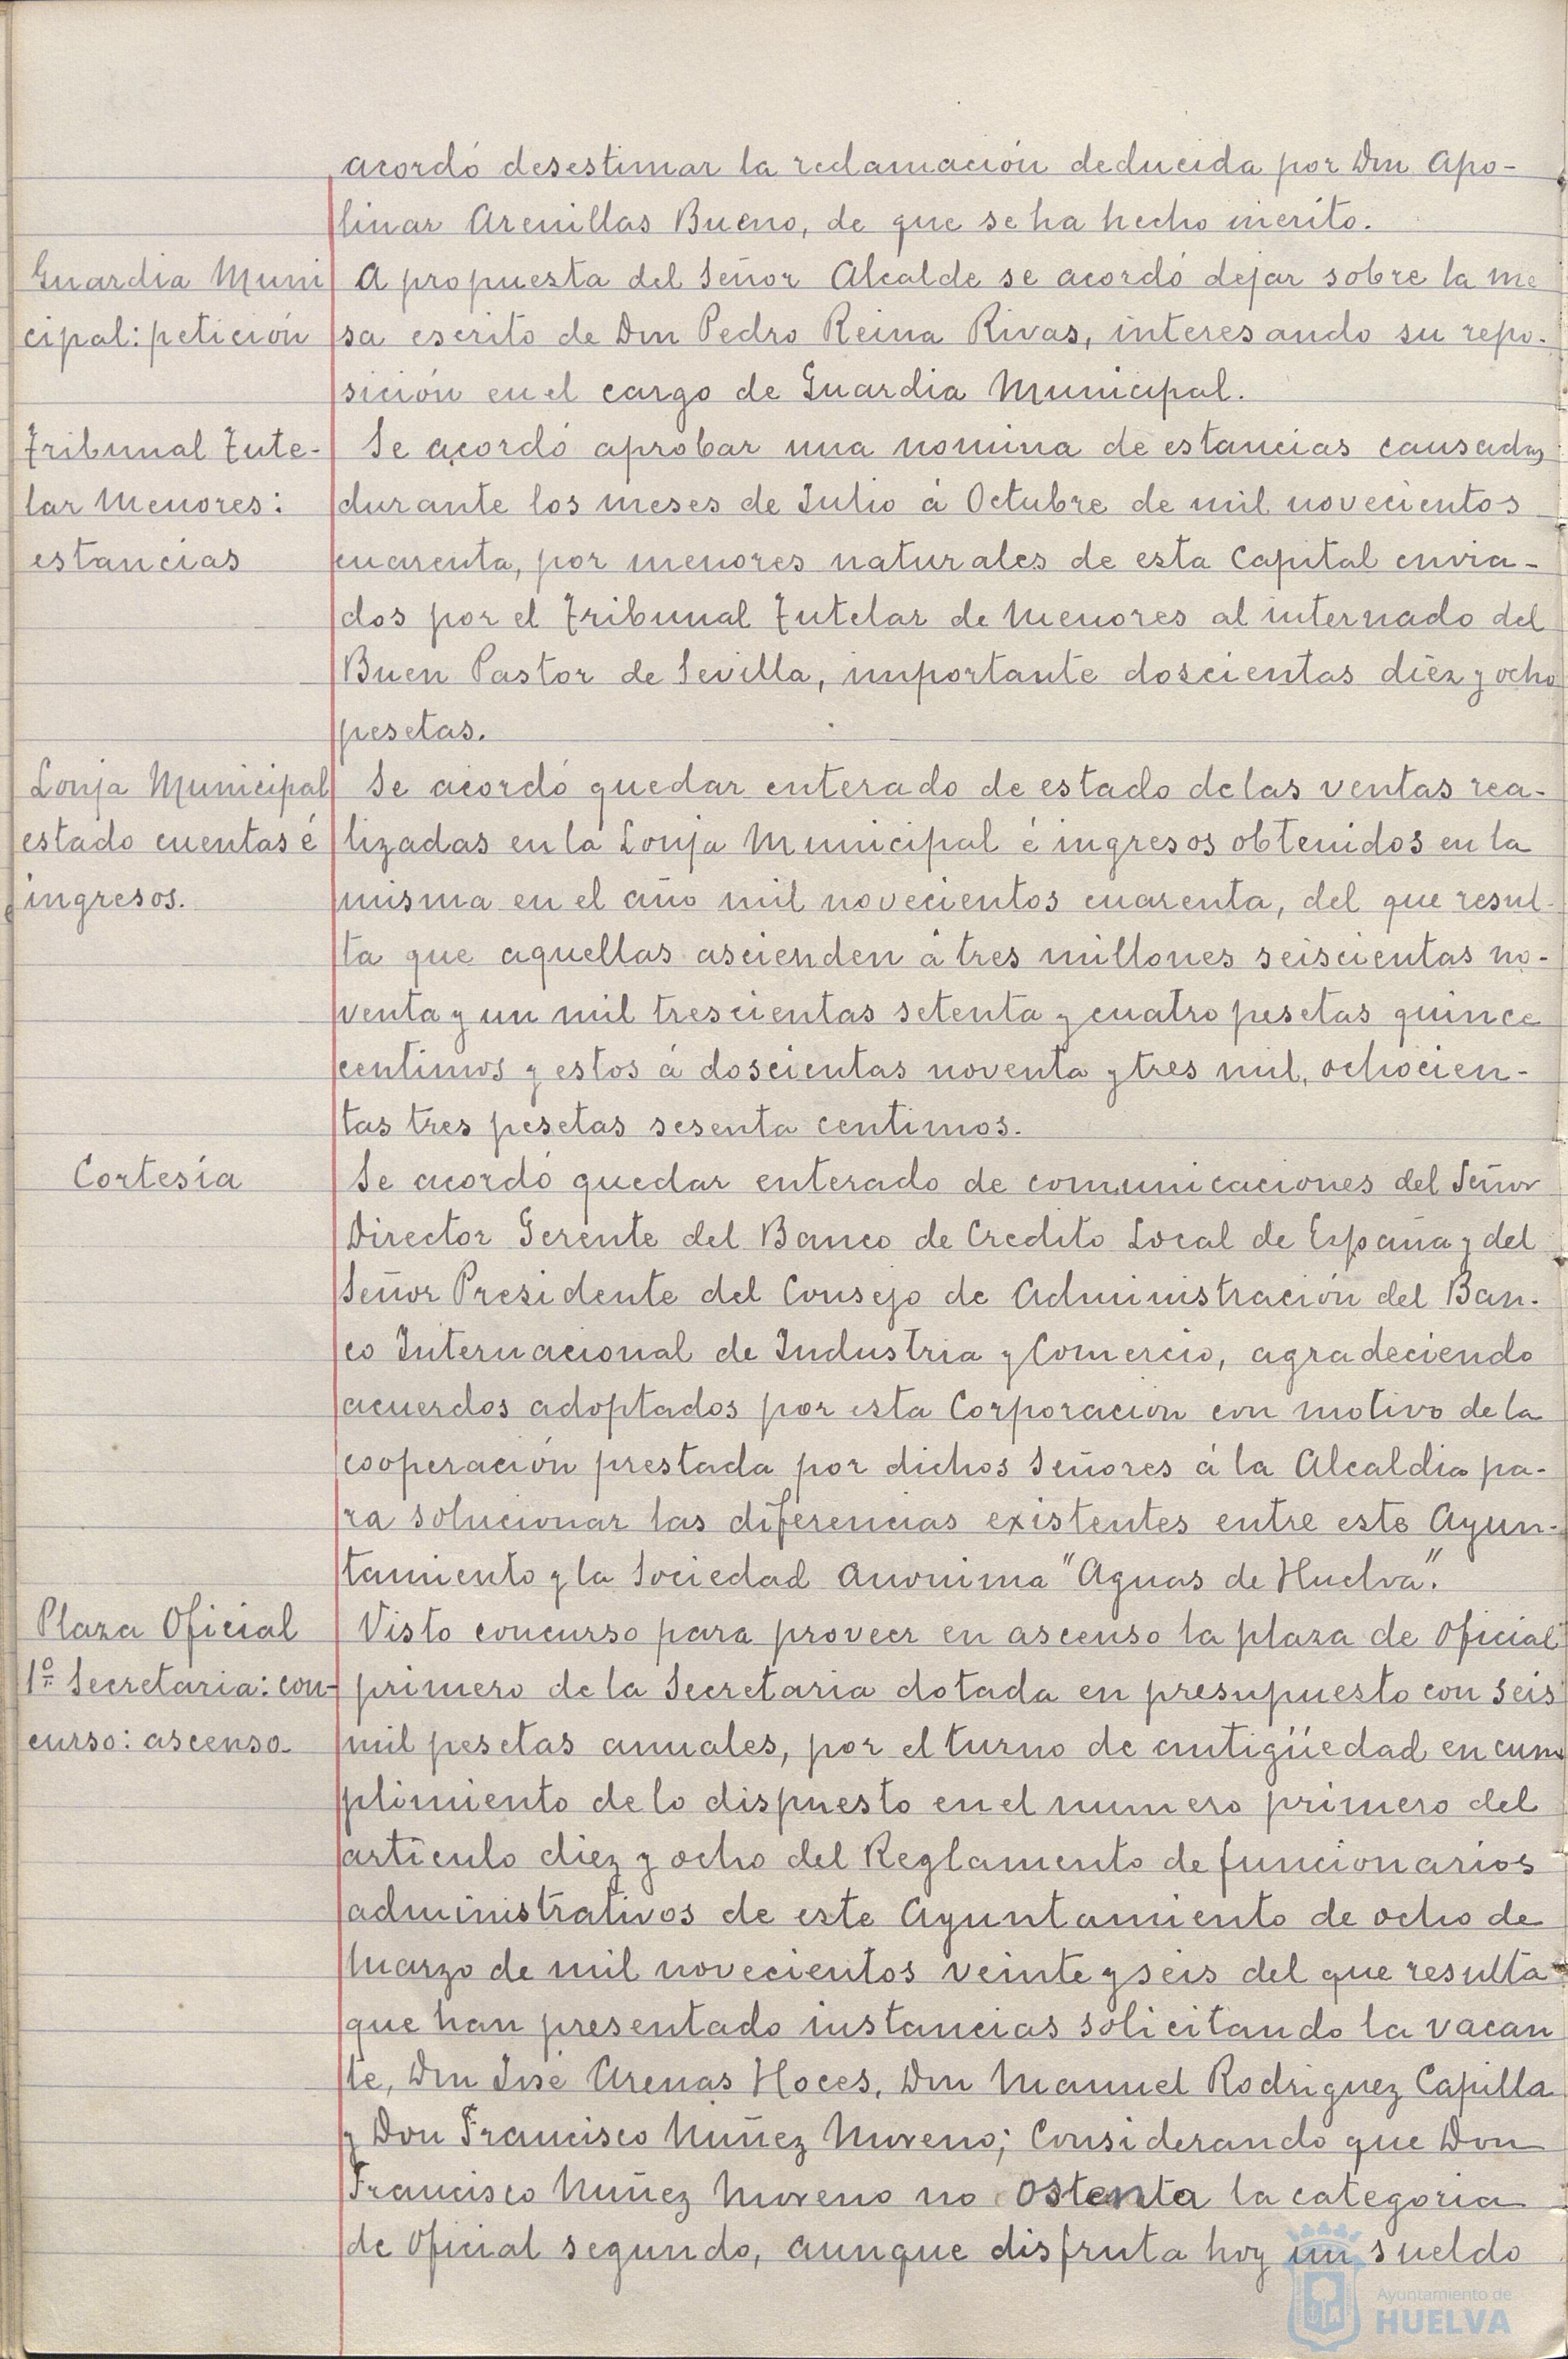 acordó desestimar la reclamación deducida por Don Apo-
linar Arenillas Bueno, de que se ha hecho merito.
Guardia Muni
cipal: petición
A propuesta del Señor Alcalde se acordó dejar sobre la me
sa escrito de Don Pedro Reina Rivas, interesando su repo-
sición en el cargo de Guardia Municipal.
Tribunal Tute-
lar Menores:
estancias
Se acordó aprobar una nomina de estancias causadas
durante los meses de Julio á Octubre de mil novecientos
cuarenta, por menores naturales de esta Capital envia-
dos por el Tribunal Tutelar de Menores al internado del
Buen Pastor de Sevilla, importante doscientas diez y ocho
pesetas.
Lonja Municipal
estado cuentas é
ingresos.
Se acordó quedar enterado de estado de las ventas rea-
lizadas en la Lonja Municipal é ingresos obtenidos en la
misma en el año mil novecientos cuarenta, del que resul-
ta que aquellas ascienden á tres millones seiscientas no-
venta y un mil trescientas setenta y cuatro pesetas quince
centimos y estos á doscientas noventa y tres mil, ochocien-
tas tres pesetas sesenta centimos.
Cortesía
Se acordó quedar enterado de comunicaciones del Señor
Director Gerente del Banco de Credito Local de España y del
Señor Presidente del Consejo de Administración del Ban-
co Internacional de Industria y Comercio, agradeciendo
acuerdos adoptados por esta Corporación con motivo de la
cooperación prestada por dichos Señores á la Alcaldia pa-
ra solucionar las diferencias existentes entre este Ayun-
tamiento y la Sociedad Anonima "Aguas de Huelva".
Plaza Oficial
1º Secretaria: con-
curso: ascenso.
Visto concurso para proveer en ascenso la plaza de Oficial
primero de la Secretaria dotada en presupuesto con seis
mil pesetas anuales, por el turno de antigüedad en cum
plimiento de lo dispuesto en el numero primero del
artículo diez y ocho del Reglamento de funcionarios
administrativos de este Ayuntamiento de ocho de
Marzo de mil novecientos veinte y seis del que resulta
que han presentado instancias solicitando la vacan
te, Don José Arenas Hoces, Don Manuel Rodriguez Capilla
y Don Francisco Núñez Moreno; Considerando que Don
Francisco Nuñez Moreno no ostenta la categoria
de Oficial segundo, aunque disfruta hoy un sueldo
Ayuntamiento de
HUELVA